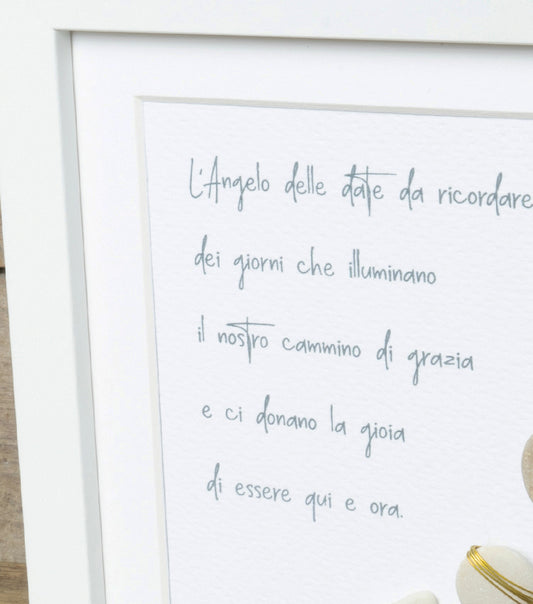 L'Angelo delle date da ricordare
dei giorni che illuminano
il nostro cammino di grazia
e ci donano la gioia
di essere qui e ora.